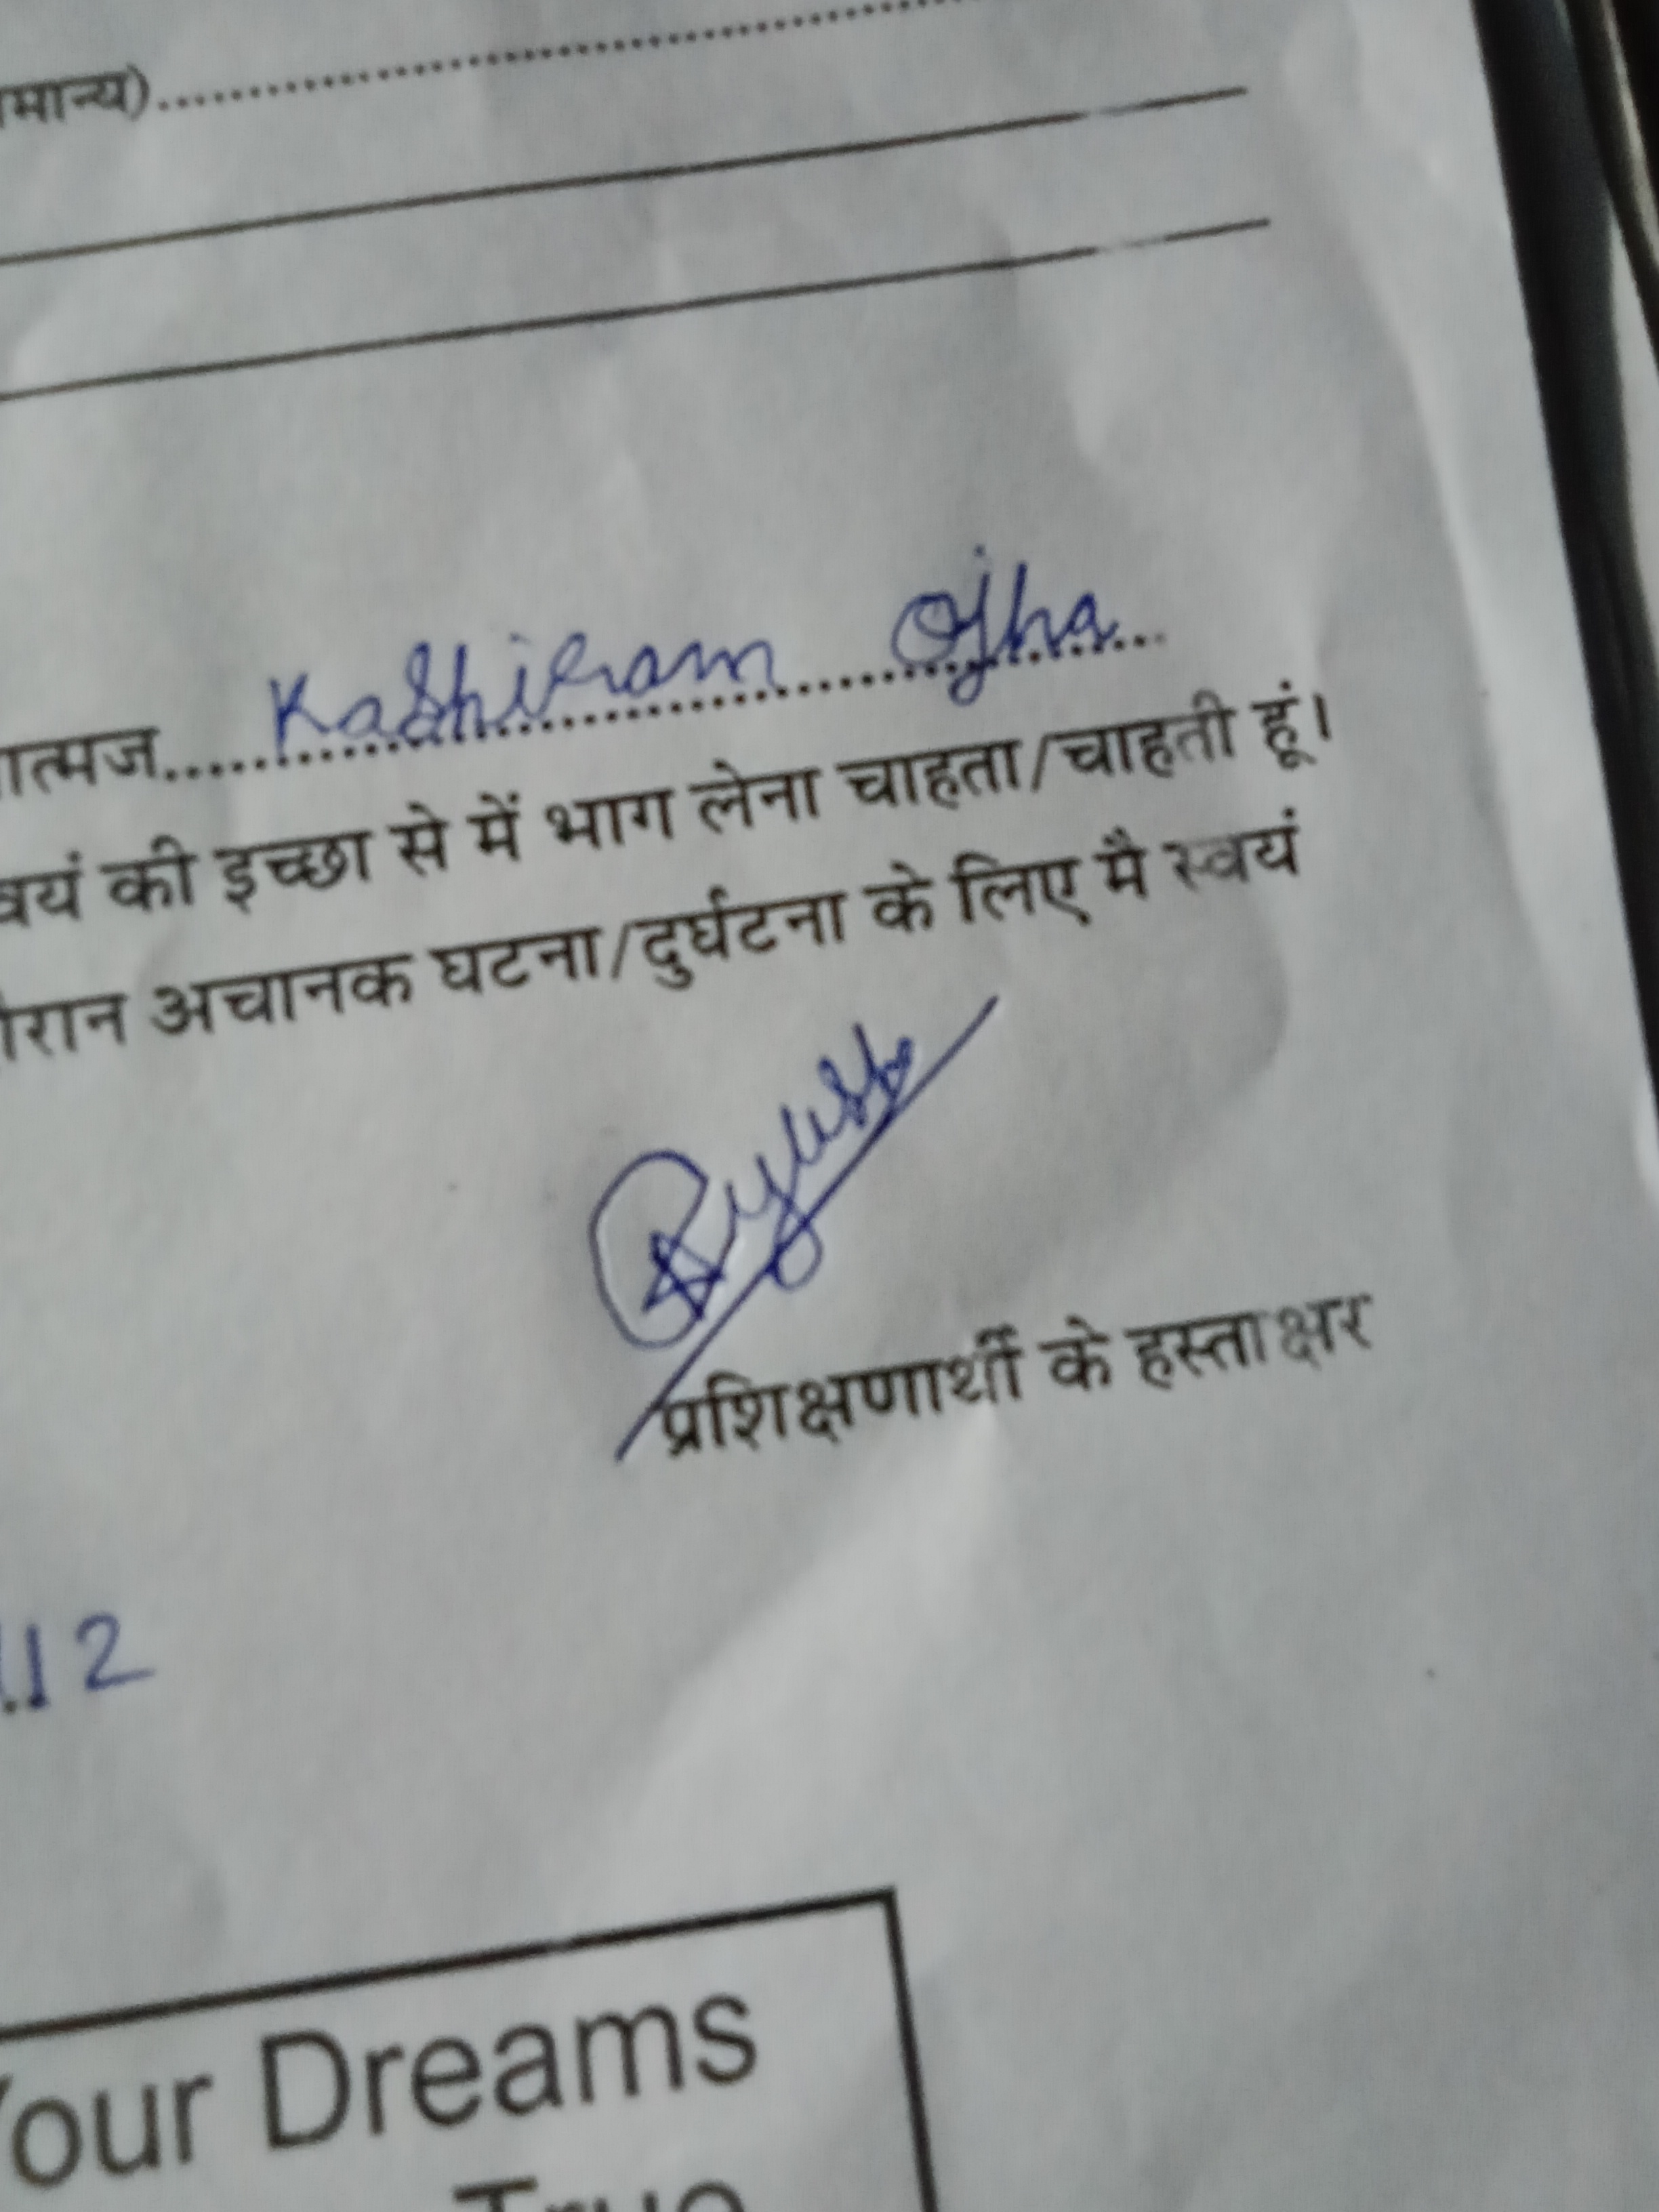 मान्य)
ात्मज Kashiram Ojha
वयं की इच्छा से में भाग लेना चाहता/चाहती हूं।
ौरान अचानक घटना/दुर्घटना के लिए मै स्वयं
प्रशिक्षणार्थी के हस्ताक्षर
12
Your Dreams
True